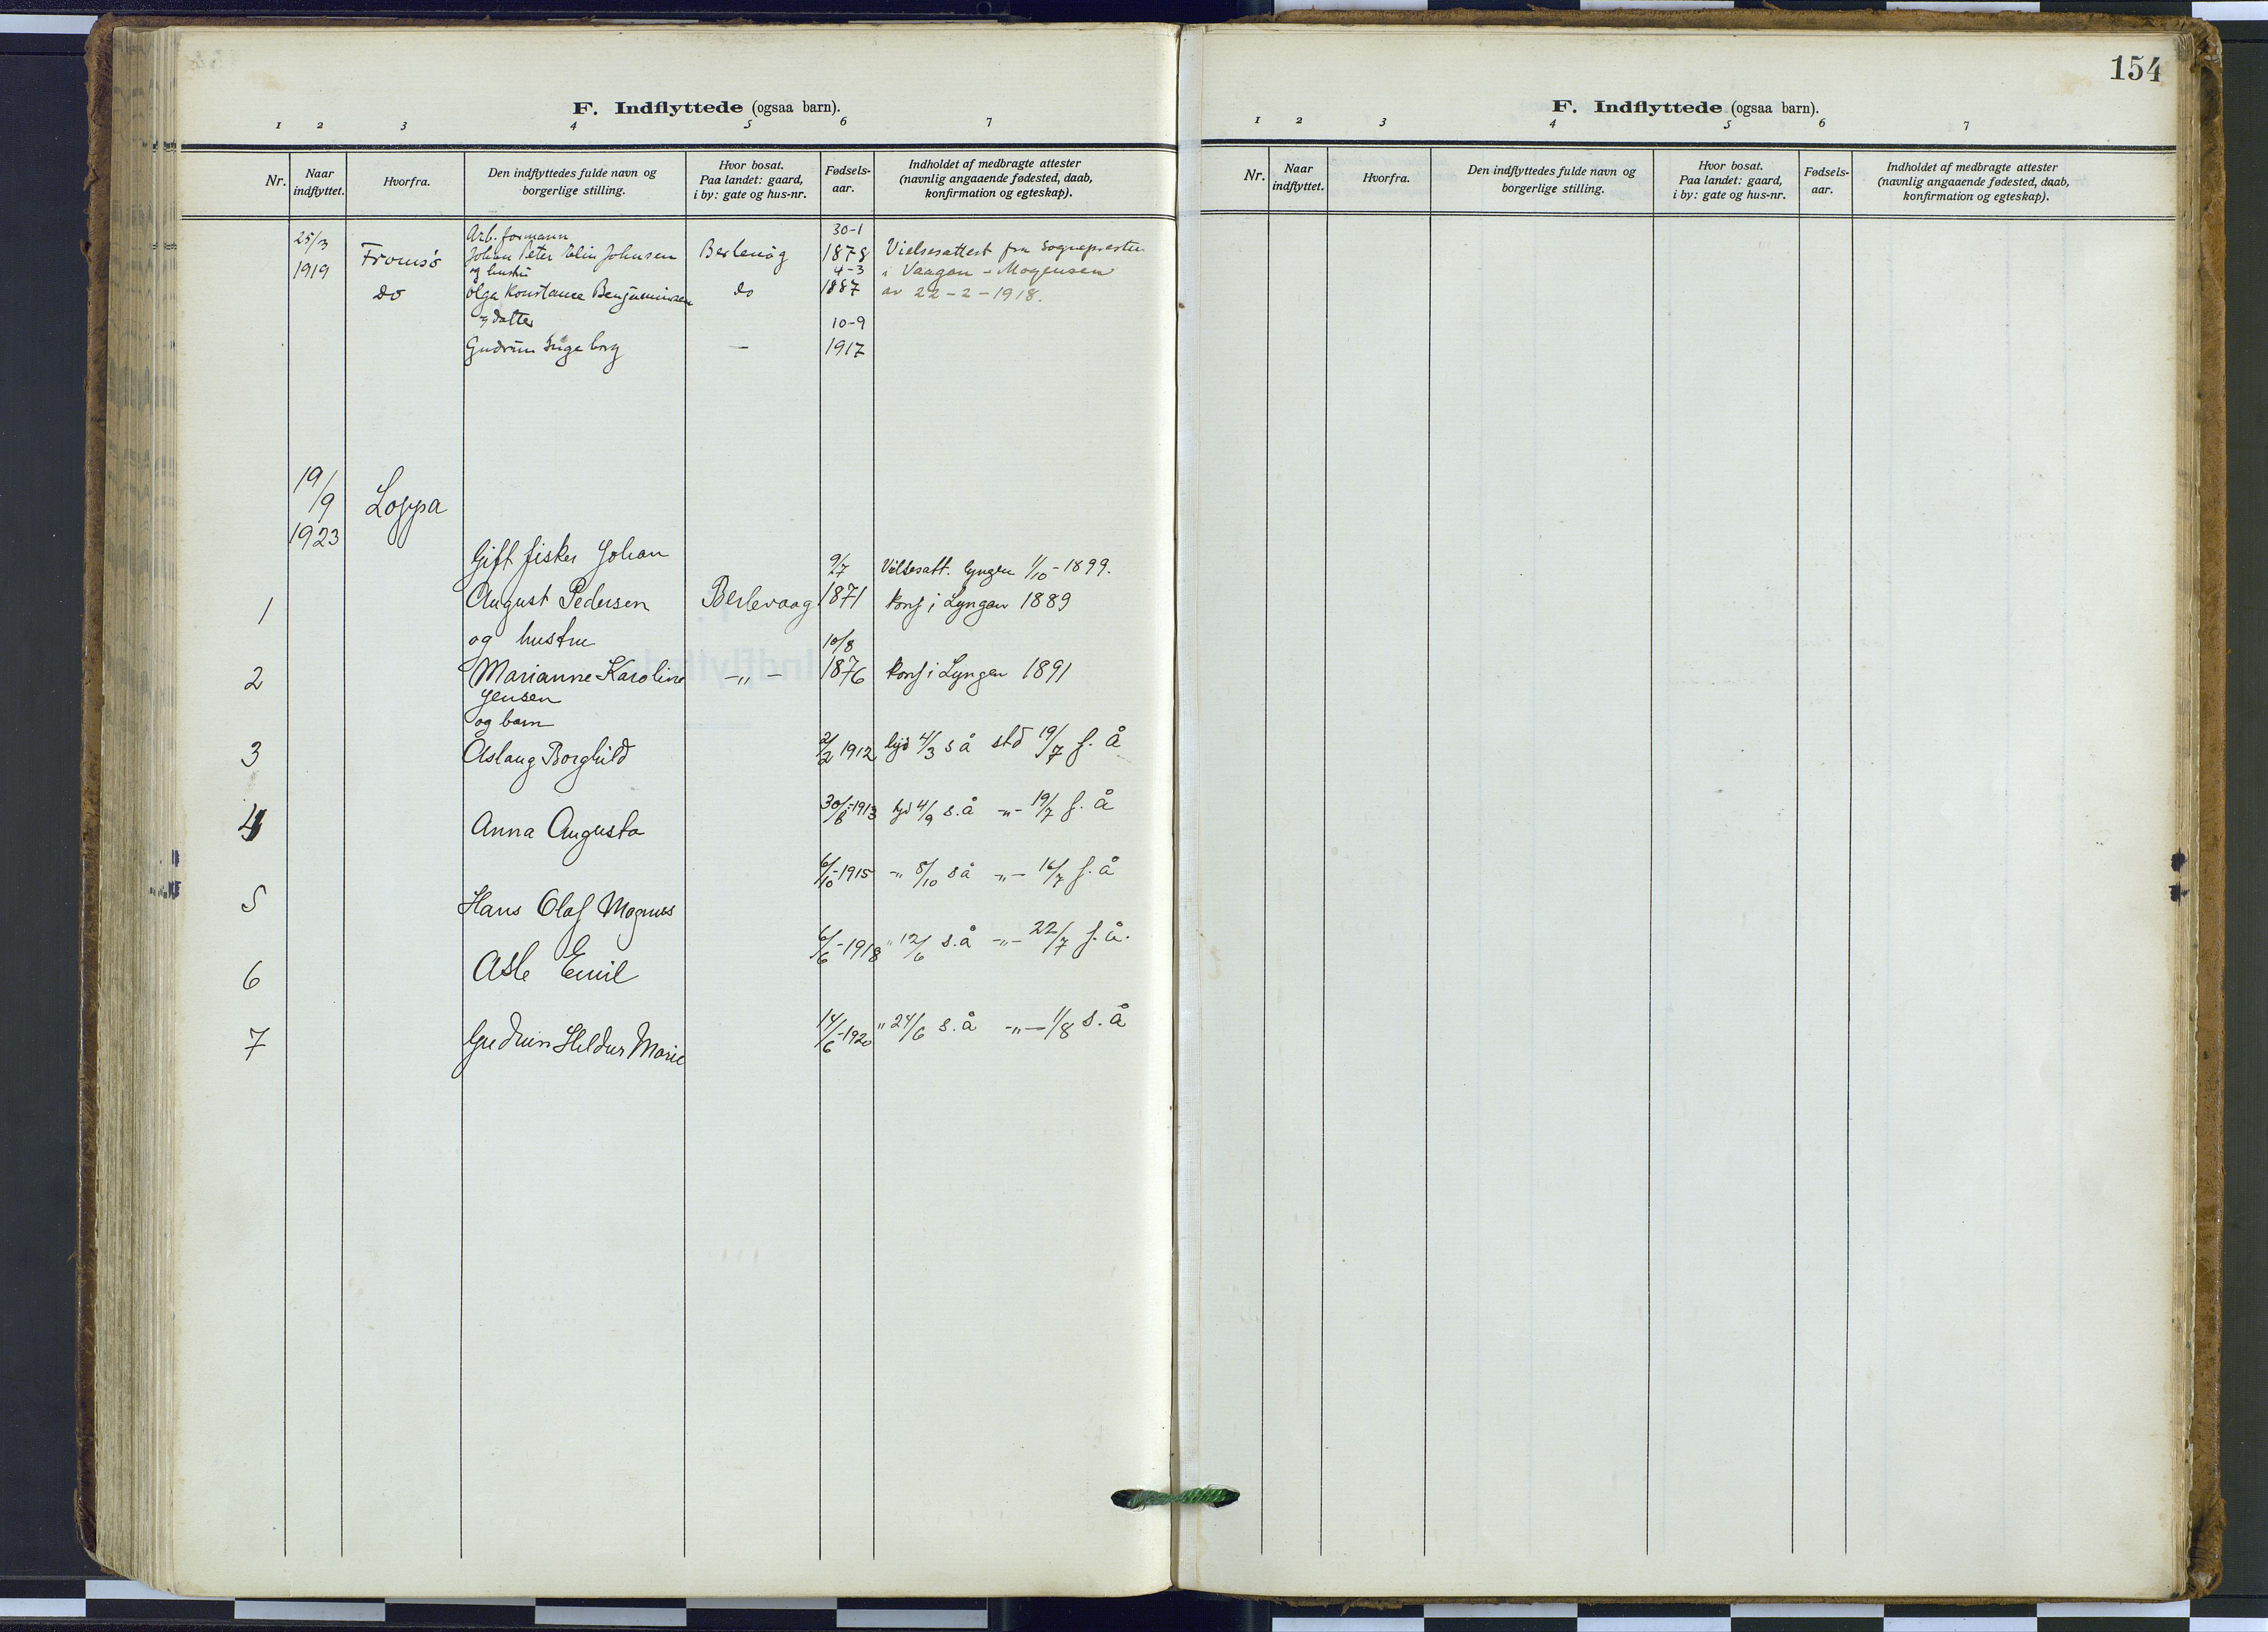 F. Indflyttede (ogsaa barn).
1 2 3 4 5 6 7
Nr. | Naar indflyttet. | Hvorfra. | Den indflyttedes fulde navn og borgerlige stilling. | Hvor bosat. Paa landet: gaard, i by: gate og hus-nr. | Fødsels-aar. | Indholdet af medbragte attester (navnlig angaaende fødested, daab, konfirmation og egteskap).
25/3 Arb. formann 30-1
1919 Tromsø Johan Peter Elin Johnsen Berlevåg 1878 Vielsesattest fra Sognepresten
og hustru 4-3 i Vaagan - Mogensen
do Olga Konstance Benjaminsen do 1887 av 22-2-1918.
og datter 10-9
Gudrun Ingeborg — 1917
19/9
1923 Loppa
Gift fisker Johan 9/7 Vielsesatt. Lyngen 1/10-1899.
1 August Pedersen Berlevaag 1871 konf i Lyngen 1889
og hustru 10/8
2 Marianne Karoline -"- 1876 konf i Lyngen 1891
Jensen
og barn
3 Aslaug Borghild 2/2 1912 hjd 4/3 s å std 19/7 f. å
4 Anna Augusta 30/8-1913 hjd 4/9 s.å -"- 19/7 f. å
5 Hans Olaf Magnus 6/10-1915 -" 8/10 så -"- 16/7 f. å
6 Asle Emil 6/6-1918 " 12/6 s.å -"- 22/7 f. å.
7 Gudrun Heldur Marie 14/6-1920 " 24/6 s.å -"- 1/8 s. å
154
F. Indflyttede (ogsaa barn).
1 2 3 4 5 6 7
Nr. | Naar indflyttet. | Hvorfra. | Den indflyttedes fulde navn og borgerlige stilling. | Hvor bosat. Paa landet: gaard, i by: gate og hus-nr. | Fødsels-aar. | Indholdet af medbragte attester (navnlig angaaende fødested, daab, konfirmation og egteskap).